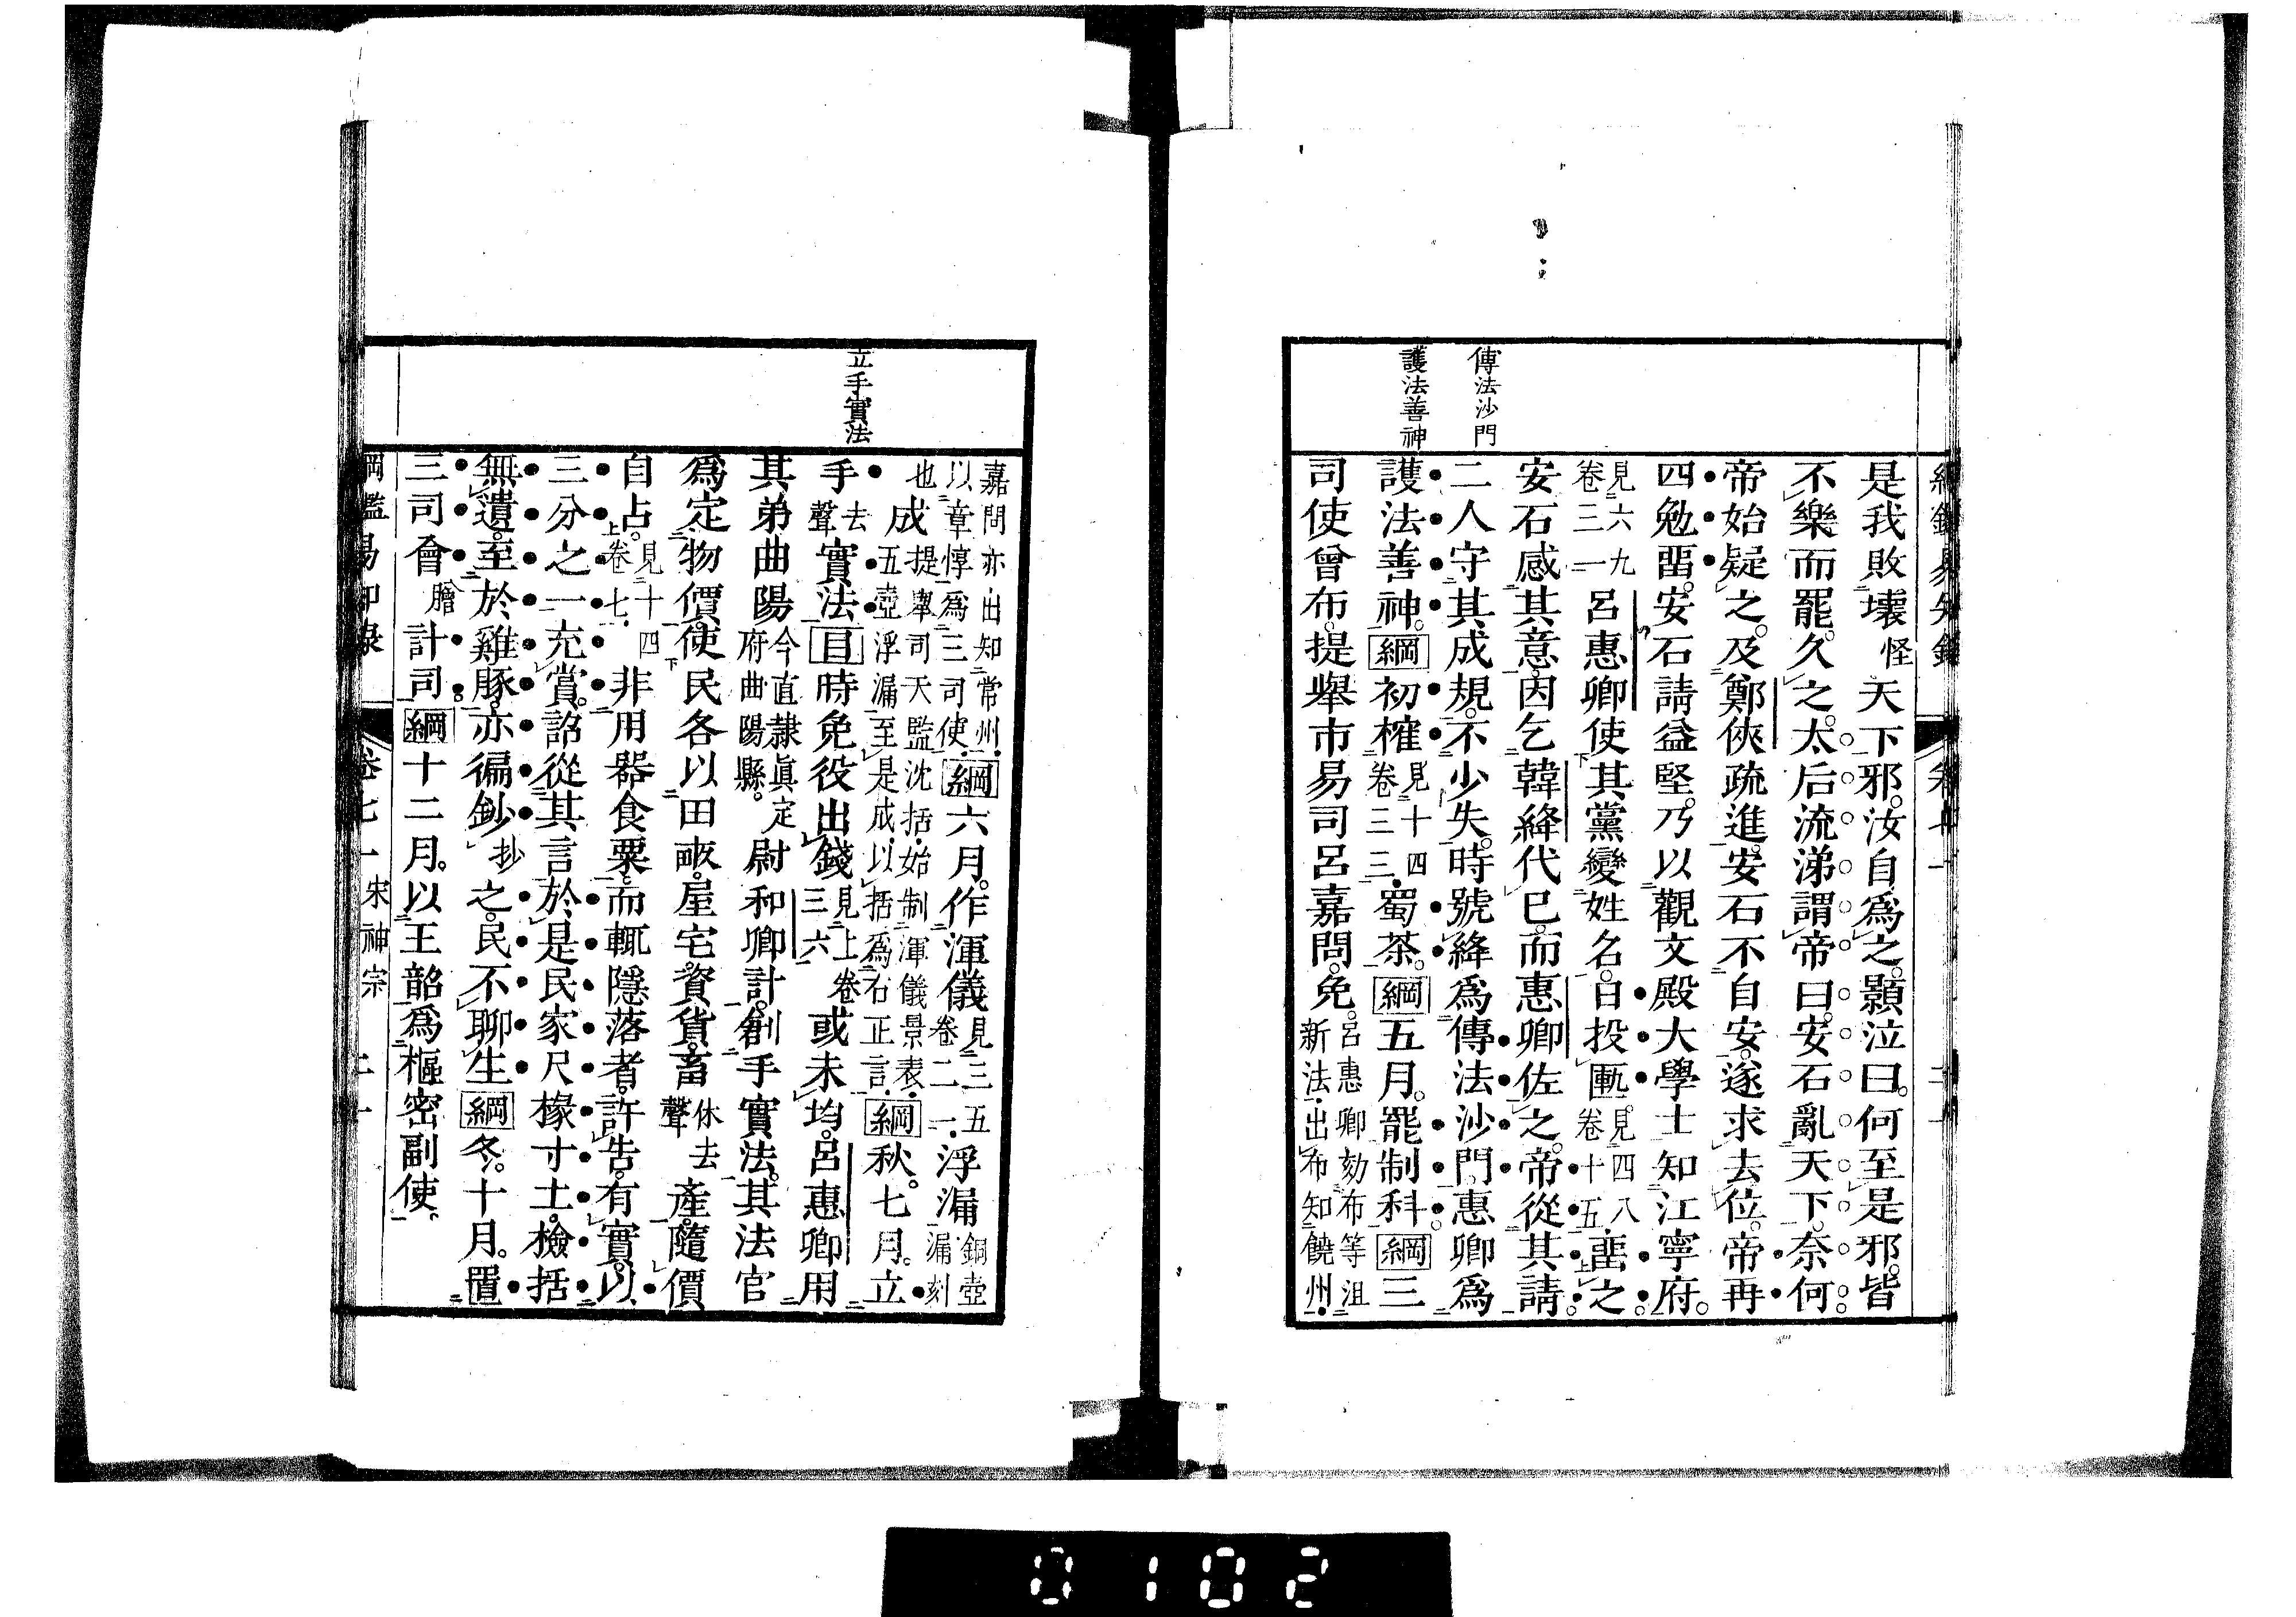 傳法沙門
護法善神
是我敗壞怪天下邪。汝自爲之。顥泣曰。何至是邪。皆
不樂而罷。久之。太后流涕謂帝曰。安石亂天下。奈何。
帝始疑之。及鄭俠疏進。安石不自安。遂求去位。帝再
四勉畱。安石請益堅。乃以觀文殿大學士知江寧府。
見六九卷三一呂惠卿使其黨變姓名。日投匭。見四八卷十五畱之。
安石感其意。因乞韓絳代已。而惠卿佐之。帝從其請。
二人守其成規。不少失。時號絳爲傳法沙門。惠卿爲
護法善神。綱初榷見十四卷三三蜀茶。綱五月。罷制科。綱三
司使曾布。提舉市易司呂嘉問。免。呂惠卿劾布等沮新法。出布知饒州。
立手實法
嘉問亦出知常州。以章惇爲三司使。綱六月。作渾儀見三五卷二一浮漏銅壺漏刻
也成提舉司天監沈括。始制渾儀景表。五壺浮漏至是成。以括爲右正言。綱秋。七月。立
手去聲實法目時免役出錢見上卷三六或未均。呂惠卿用
其弟曲陽今直隸眞定府曲陽縣。尉和卿計。創手實法。其法官
爲定物價。使民各以田畝。屋宅。資貨。畜休去聲產。隨價
自占。見十四上卷七非用器食粟。而輒隱落者。許告。有實。以
三分之一充賞。詔從其言。於是民家尺椽寸土。檢括
無遺。至於雞豚。亦徧鈔抄之。民不聊生綱冬。十月。置
三司會膾計司。綱十二月。以王韶爲樞密副使。
綱鑑易知錄 卷七十一 宋神宗
0102